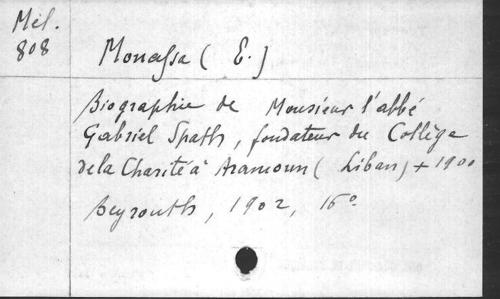 Mél.
808
Monassa ( E. )
Biographie de Monsieur l'abbé
Gabriel Spath, fondateur du Collège
de la Charité à Aramoun ( Liban) + 1900
Beyrouth, 1902, 16º.